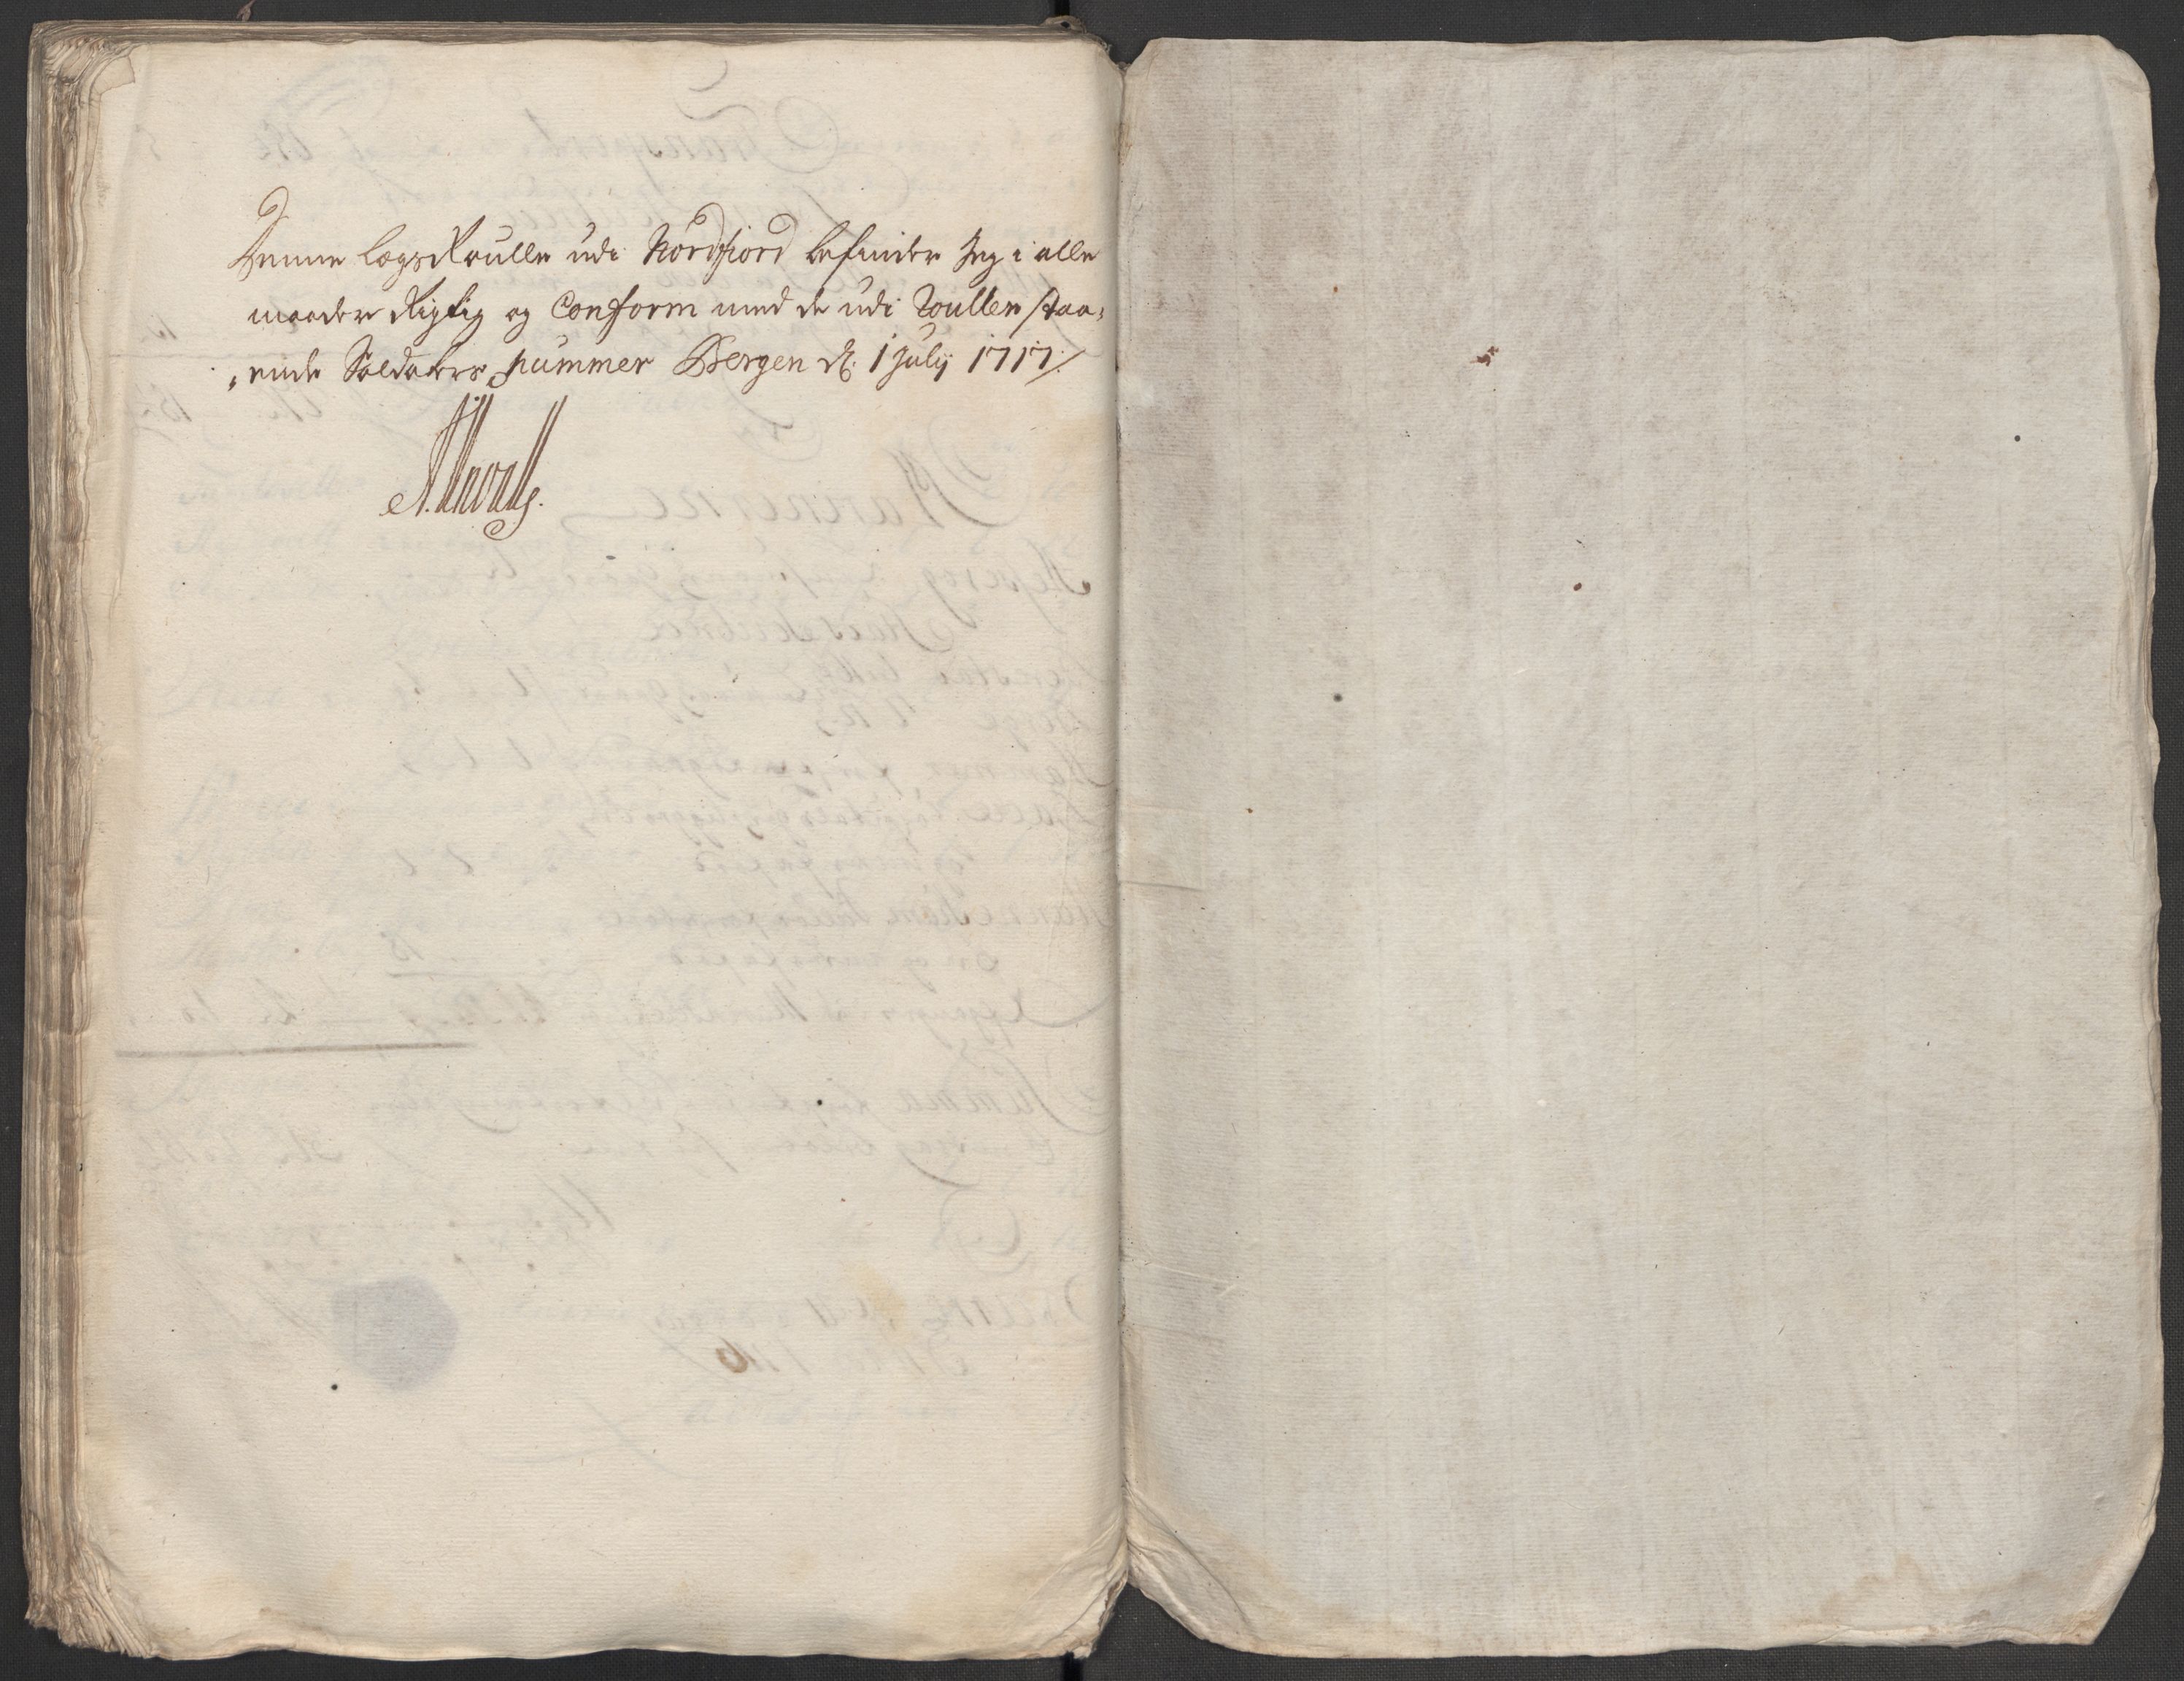 Denne LægsRoulle udi Nordfiord befinder Jeg i alle
maader Rigtig og Conform med de udi Roullen staa,
,ende Soldaters Nummer Bergen d. 1 July 1717/.